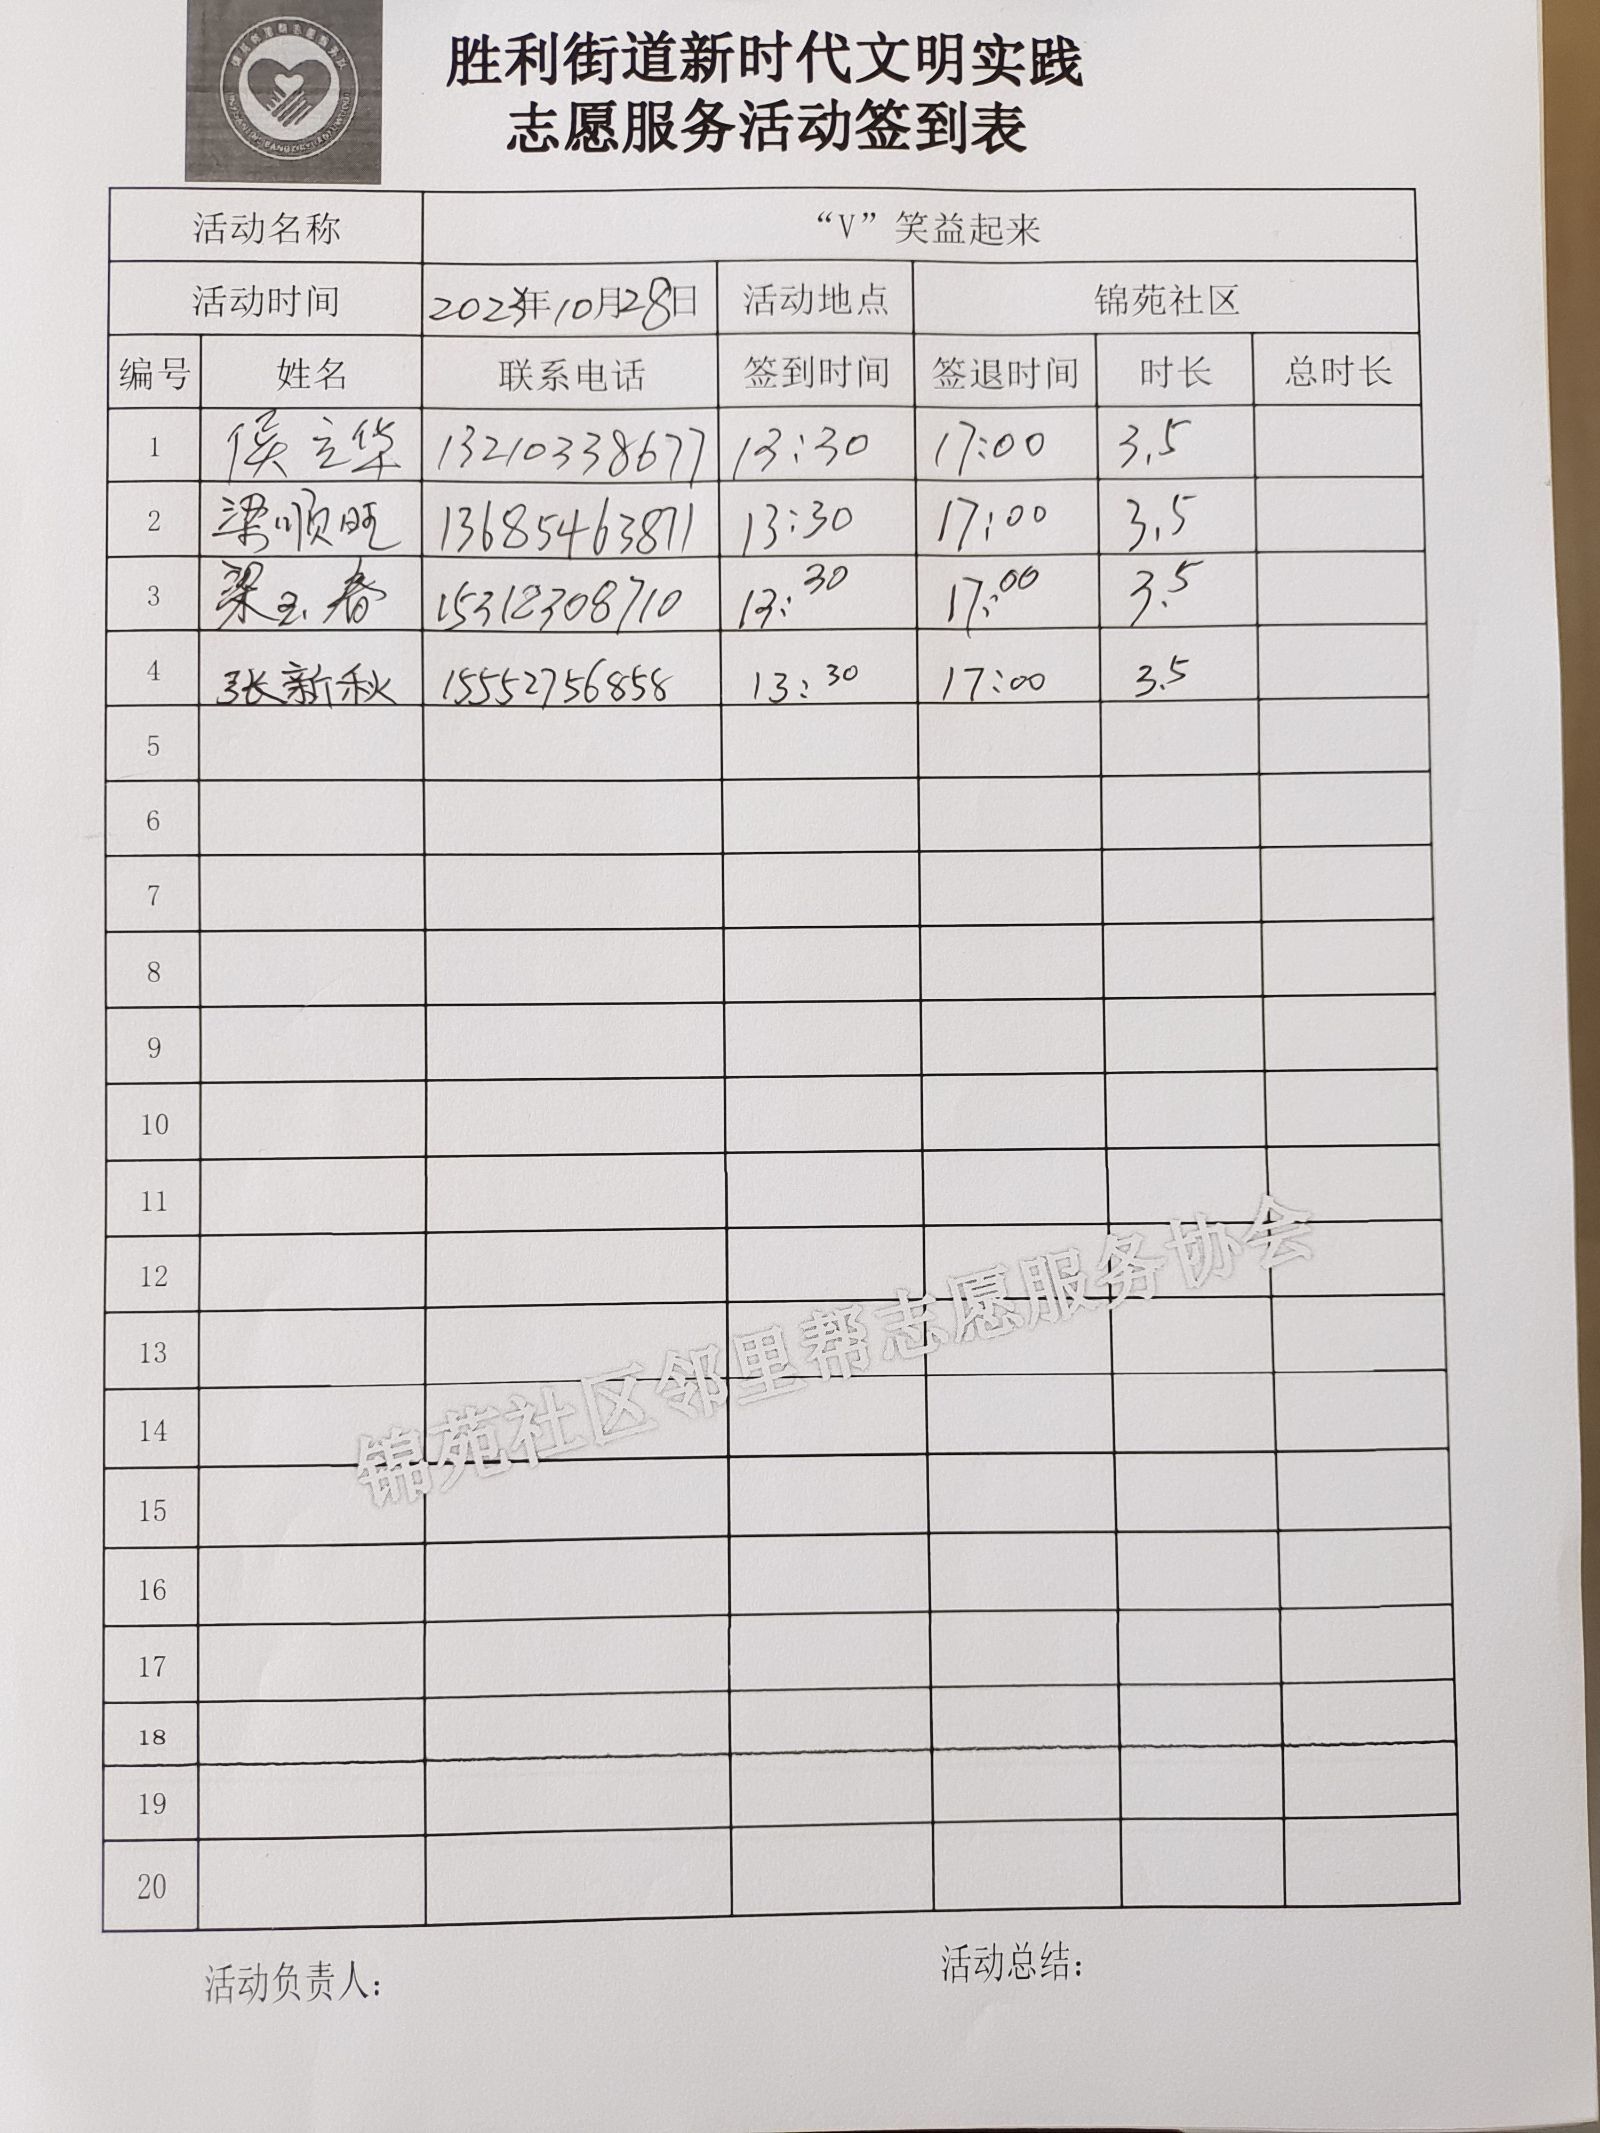 胜利街道新时代文明实践
志愿服务活动签到表
活动名称 “V”笑益起来
活动时间 2023年10月28日 活动地点 锦苑社区
编号 姓名 联系电话 签到时间 签退时间 时长 总时长
1 侯立华 13210338677 13:30 17:00 3.5
2 梁顺旺 13685463871 13:30 17:00 3.5
3 梁玉春 15312308710 13:30 17:00 3.5
4 张新秋 15552756858 13:30 17:00 3.5
5
6
7
8
9
10
11
12
13
14
15
16
17
18
19
20
锦苑社区邻里帮志愿服务协会
活动负责人:
活动总结: